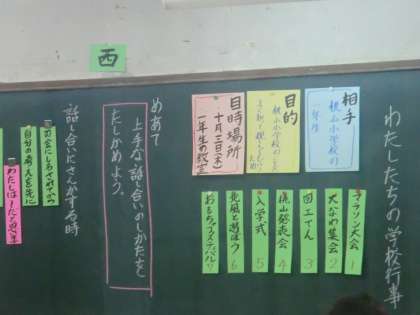 西
わたしたちの学校行事
相手
桃山小学校の
一年生
目的
日時場所
十月三日(木)
一年生の教室
マラソン大会 1
大なわ集会 2
図工てん 3
桃山発表会 4
入学式 5
北風と遊ぼう 6
おもちゃフェスティバル 7
めあて
上手な話し合いのしかたを
たしかめよう。
話し合いにさんかする時
自分の考えを先に